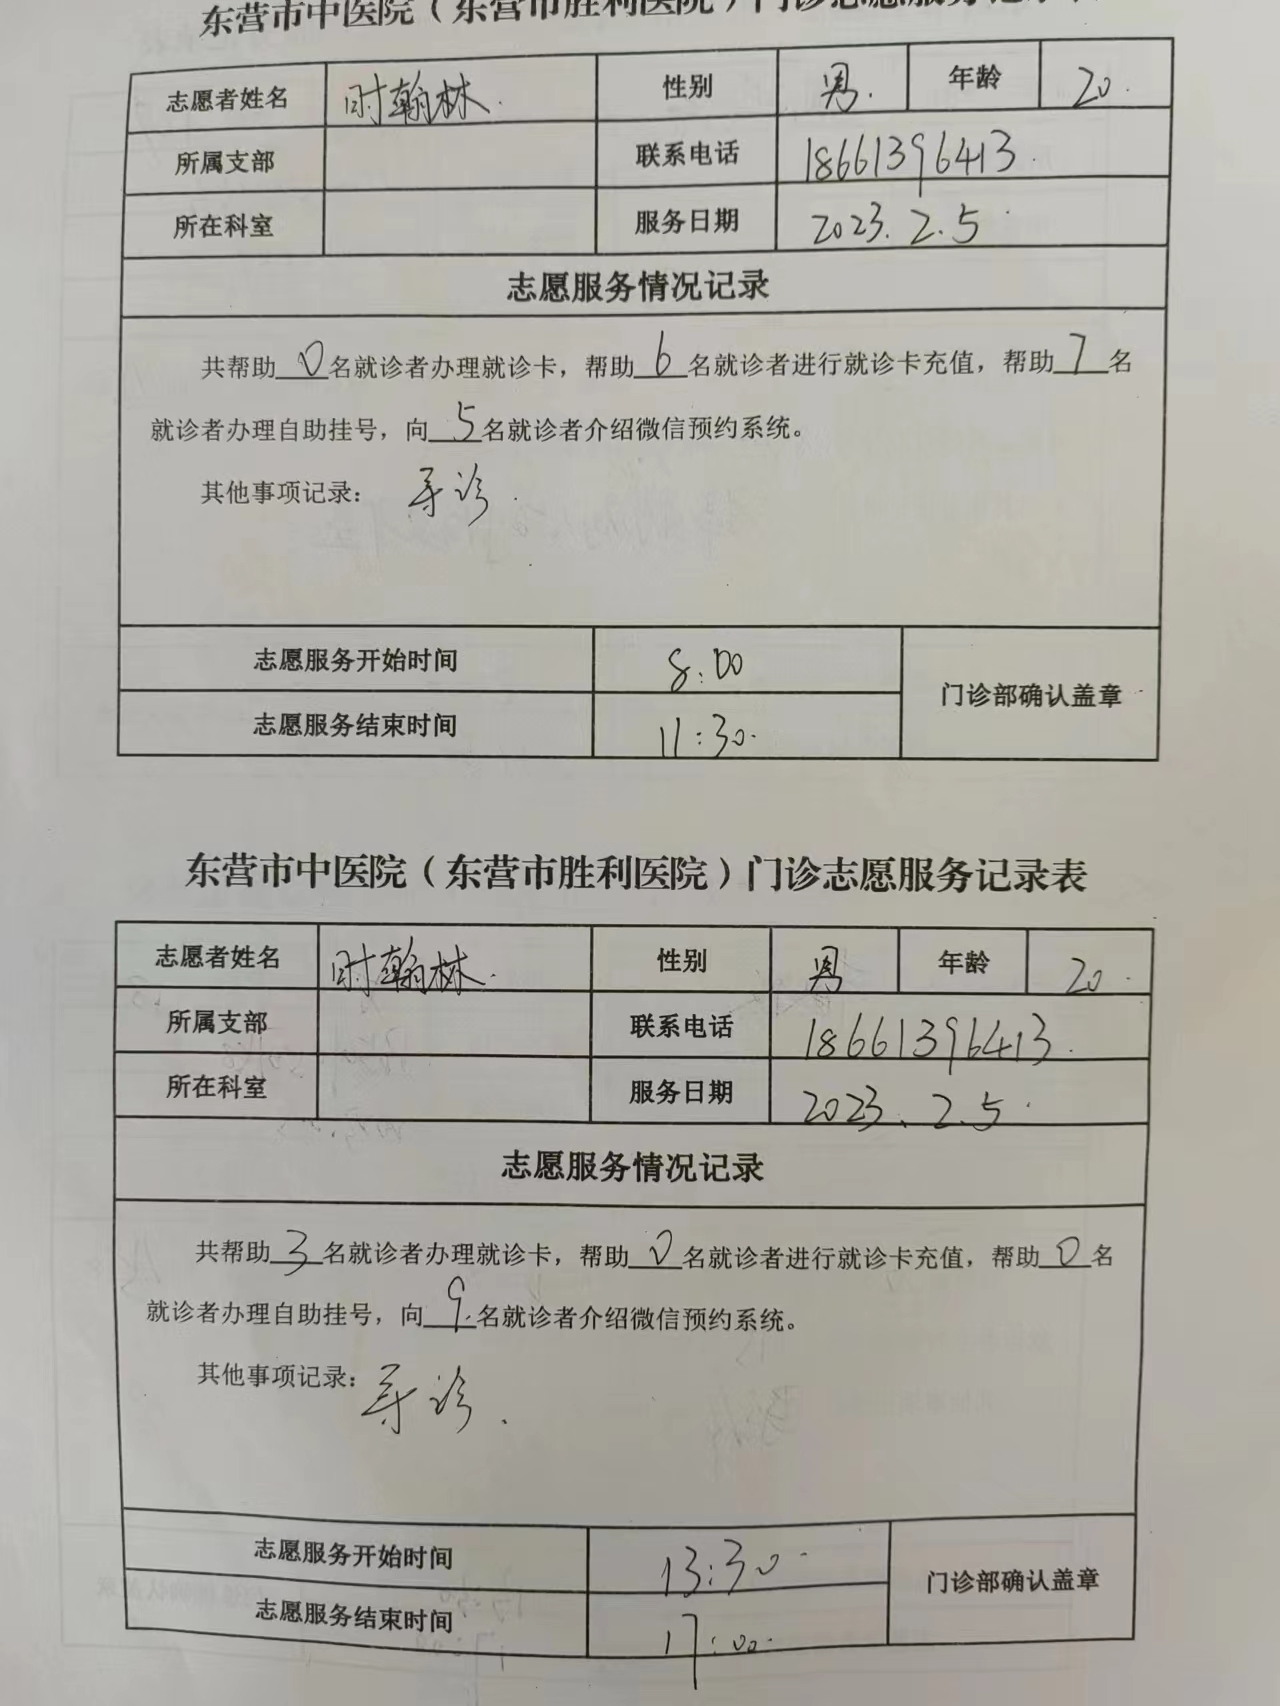 东营市中医院（东营市胜利医院）门诊志愿服务记录表
志愿者姓名 时翰林. 性别 男. 年龄 20.
所属支部 联系电话 18661396413.
所在科室 服务日期 2023.2.5.
志愿服务情况记录
共帮助0名就诊者办理就诊卡，帮助6名就诊者进行就诊卡充值，帮助7名
就诊者办理自助挂号，向5名就诊者介绍微信预约系统。
其他事项记录： 导诊.
志愿服务开始时间 8:00
门诊部确认盖章
志愿服务结束时间 11:30.
东营市中医院（东营市胜利医院）门诊志愿服务记录表
志愿者姓名 时翰林. 性别 男 年龄 20.
所属支部 联系电话 18661396413.
所在科室 服务日期 2023.2.5.
志愿服务情况记录
共帮助3名就诊者办理就诊卡，帮助0名就诊者进行就诊卡充值，帮助0名
就诊者办理自助挂号，向9.名就诊者介绍微信预约系统。
其他事项记录： 导诊.
志愿服务开始时间 13:30.
门诊部确认盖章
志愿服务结束时间 17:00.